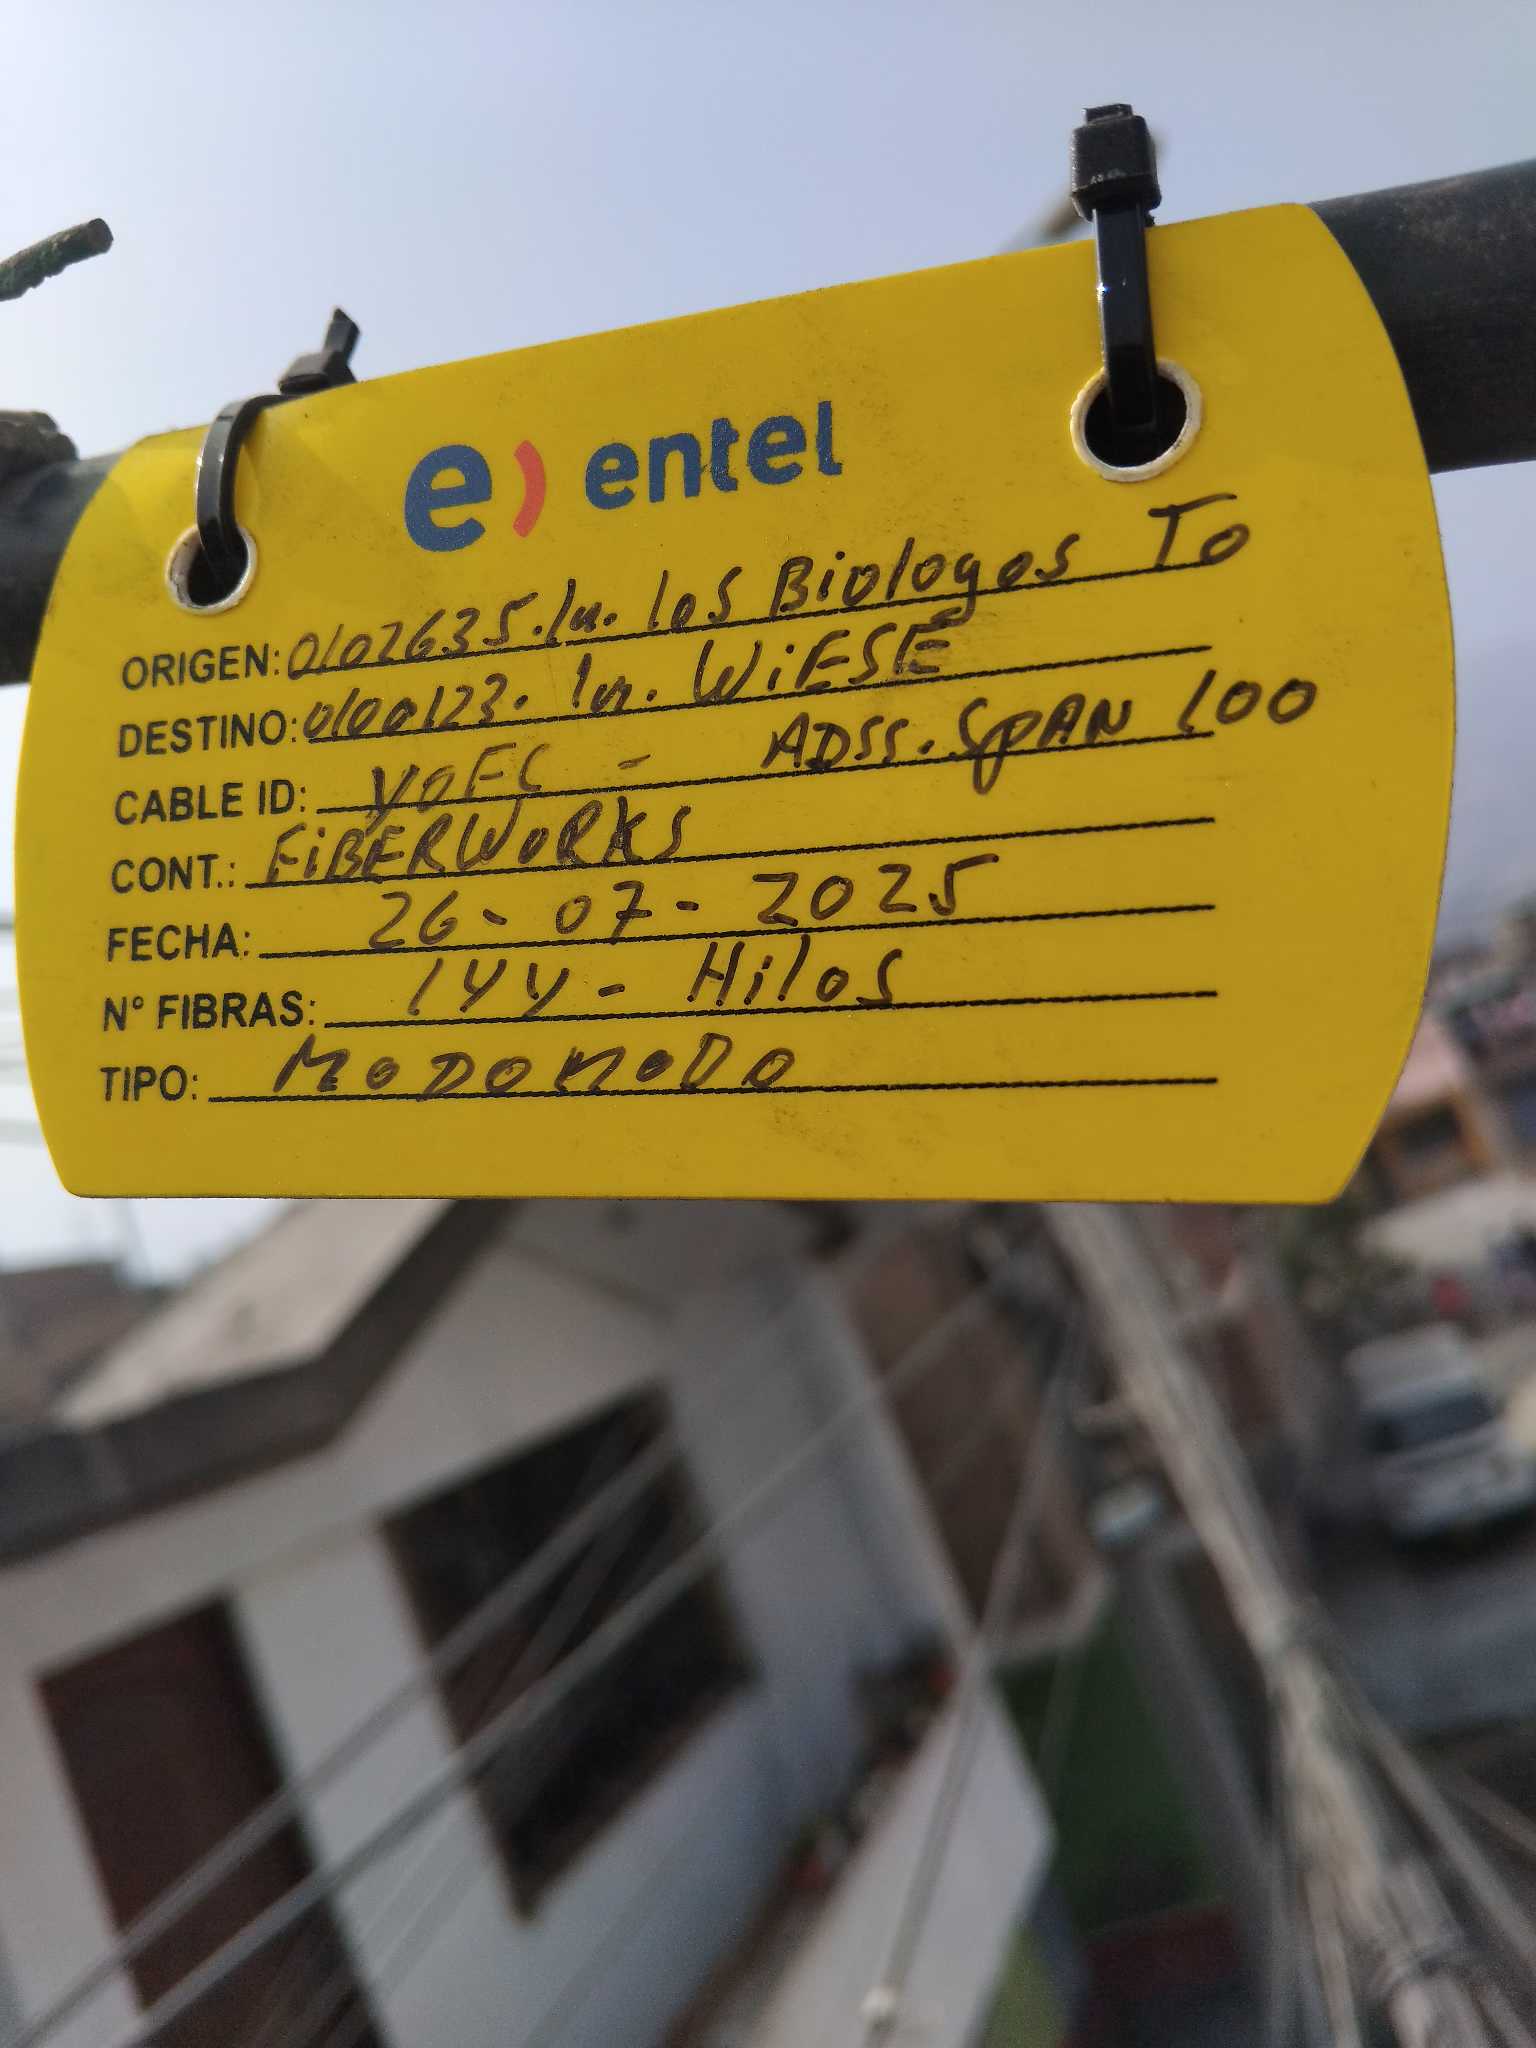 e) entel
ORIGEN: 0102635.Lm. los Biologos To
DESTINO: 0100123. Lm. WiESE
CABLE ID: YOFC - ADSS. SPAN 100
CONT.: FiBERWORKS
FECHA: 26-07-2025
N° FIBRAS: 144-Hilos
TIPO: MODOMODO